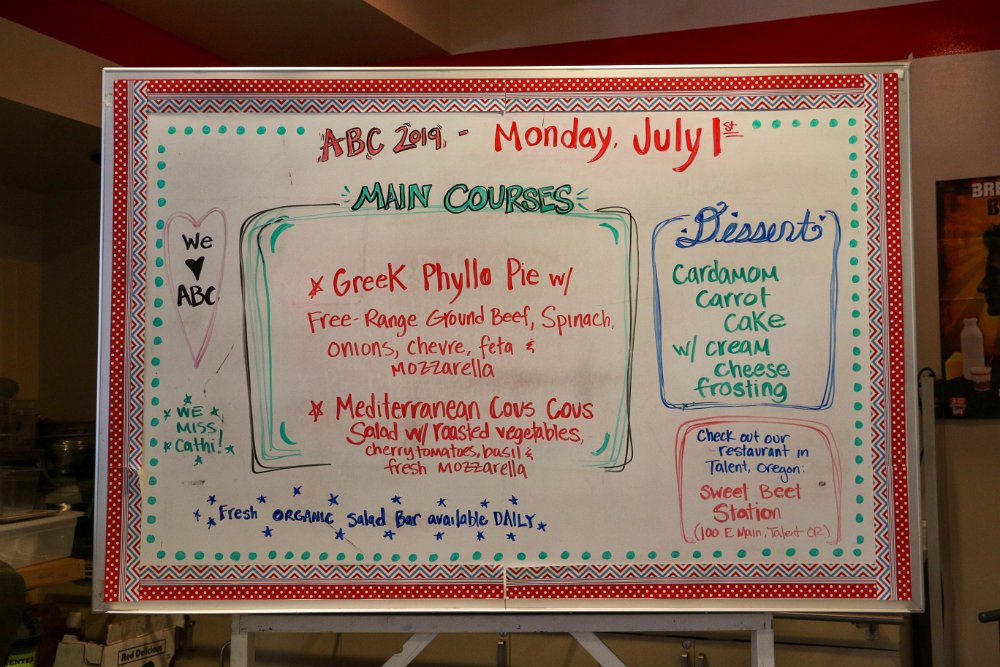 ABC 2019 - Monday, July 1st
MAIN COURSES
Greek Phyllo Pie w/
Free-Range Ground Beef, Spinach,
onions, chevre, feta &
mozzarella
Mediterranean Cous Cous
Salad w/ roasted vegetables,
cherry tomatoes, basil &
fresh mozzarella
We
♥
ABC
WE
MISS
Cathi!
Dessert
Cardamom
Carrot
Cake
w/ cream
cheese
frosting
Check out our
restaurant in
Talent, Oregon:
Sweet Beet
Station
(100 E Main, Talent OR)
Fresh ORGANIC Salad Bar available DAILY
Red Delicious